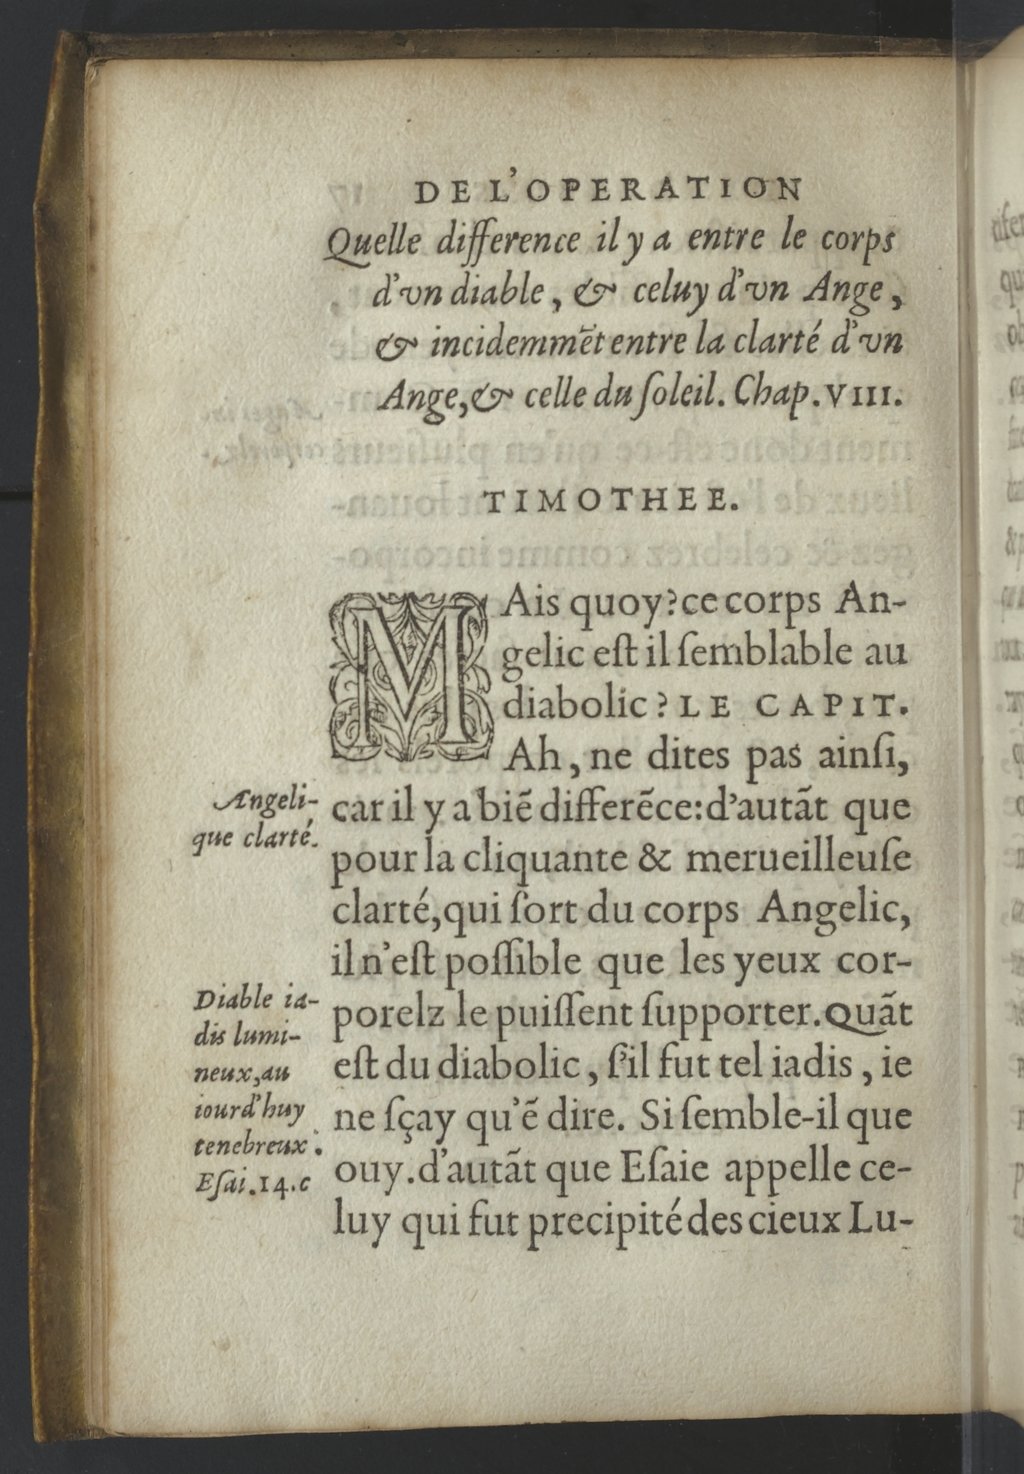 DE L'OPERATION
Quelle difference il y a entre le corps
d'vn diable, & celuy d'vn Ange,
& incidemmẽt entre la clarté d'vn
Ange, & celle du ſoleil. Chap. VIII.
TIMOTHEE.
MAis quoy? ce corps An-
gelic eſt il ſemblable au
diabolic? LE CAPIT.
Ah, ne dites pas ainſi,
car il y a biẽ differẽce: d'autãt que
pour la cliquante & merueilleuſe
clarté, qui ſort du corps Angelic,
il n'eſt poſſible que les yeux cor-
porelz le puiſſent ſupporter. Quãt
eſt du diabolic, ſ'il fut tel iadis, ie
ne ſçay qu'ẽ dire. Si ſemble-il que
ouy. d'autãt que Eſaie appelle ce-
luy qui fut precipité des cieux Lu-
Angeli-
que clarté.
Diable ia-
dis lumi-
neux, au
iourd'huy
tenebreux.
Eſai. 14. c